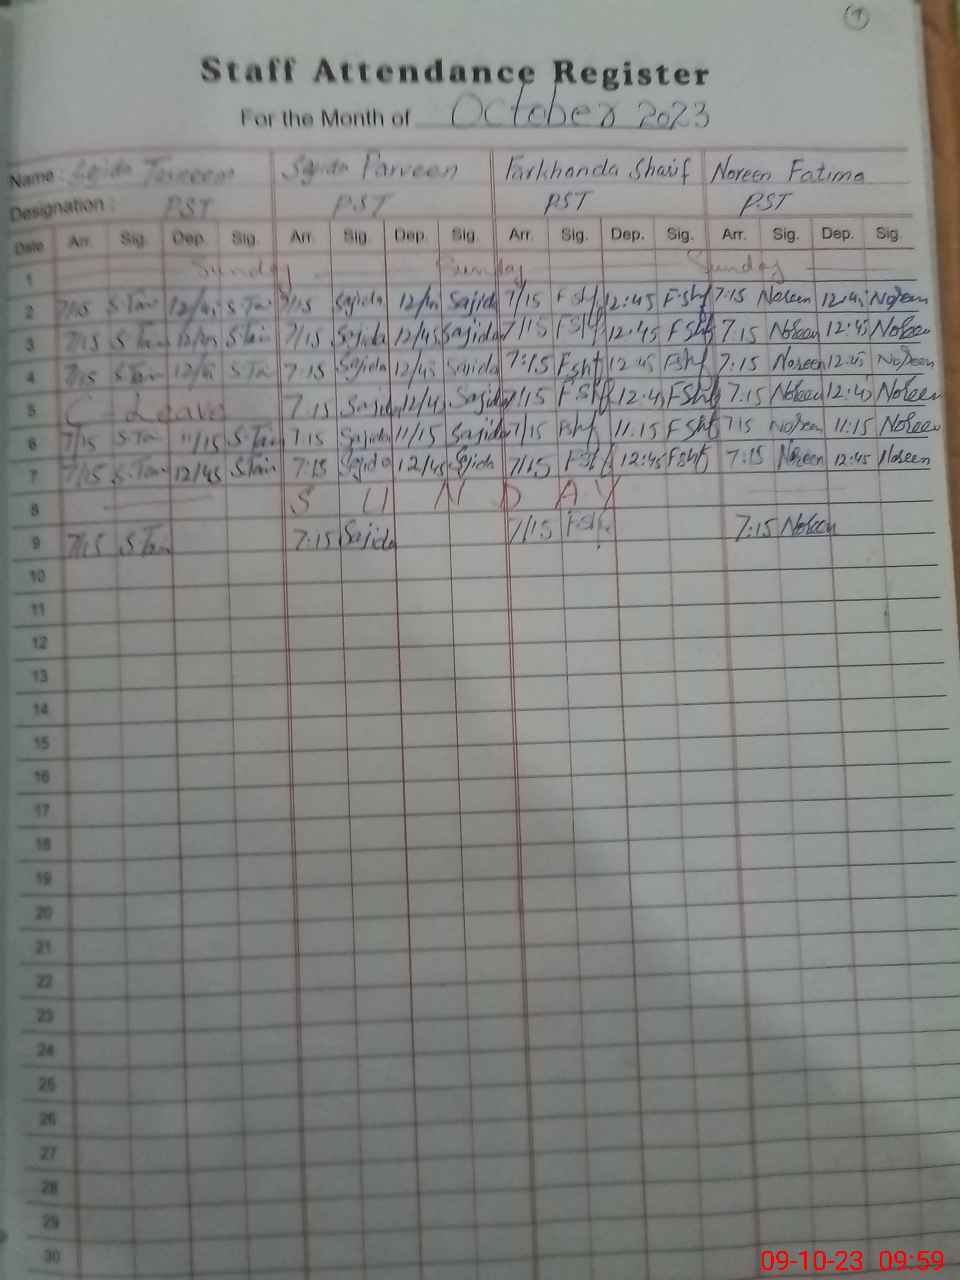 (1)
Staff Attendance Register
For the Month of October 2023
Name : Sajida Parveen Farkhanda Sharif Noreen Fatima
Designation : PST PST PST PST
Date Arr. Sig. Dep. Sig. Arr. Sig. Dep. Sig. Arr. Sig. Dep. Sig. Arr. Sig. Dep. Sig.
1 Sunday Sunday Sunday
2 7/15 S.Tar 12/45 S Tar 7/15 Sajida 12/45 Sajida 7/15 Fshf 12:45 F.Shf 7:15 Noreen 12:45 Noreen
3 7/15 S Tar 12/45 S Tar 7/15 Sajida 12/45 Sajida 7/15 Fshf 12:45 FShf 7.15 Noreen 12:45 Noreen
4 7/15 S Tar 12/45 S Tar 7:15 Sajida 12/45 Sajida 7:15 Fshf 12:45 FShf 7:15 Noreen 12:45 Noreen
5 C - Leave 7.15 Sajida 12/45 Sajida 7/15 FShf 12:45 FShf 7:15 Noreen 12:45 Noreen
6 7/15 S.Tar 11/15 S.Tar 7:15 Sajida 11/15 Sajida 7/15 Fshf 11.15 FShf 7:15 Noreen 11:15 Noreen
7 7/15 S.Tar 12/45 S.Tar 7:15 Sajida 12/45 Sajida 7/15 FShf 12:45 FShf 7:15 Noreen 12:45 Noreen
8 S U N D A Y
9 7/15 S Tar 7:15 Sajida 7/15 FSh 7:15 Noreen
10
11
12
13
14
15
16
17
18
19
20
21
22
23
24
25
26
27
28
29
30
09-10-23 09:59